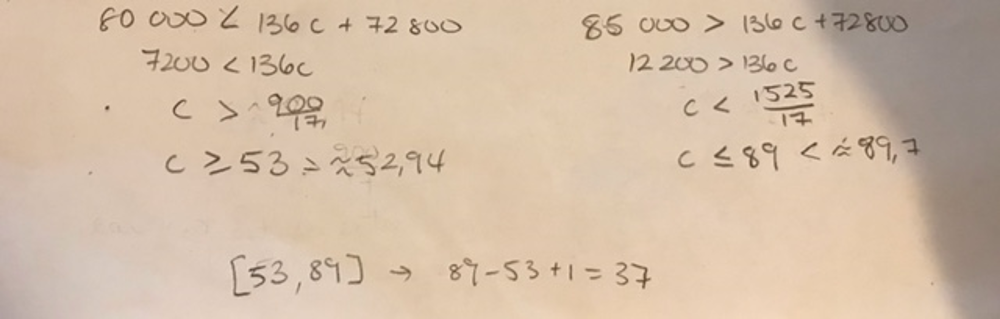 80 000 < 136c + 72 800
7200 < 136c
c > 900/17
c ≥ 53 > ≈52,94
85 000 > 136c + 72800
12 200 > 136c
c < 1525/17
c ≤ 89 < ≈ 89,7
[53,89] → 89-53+1=37